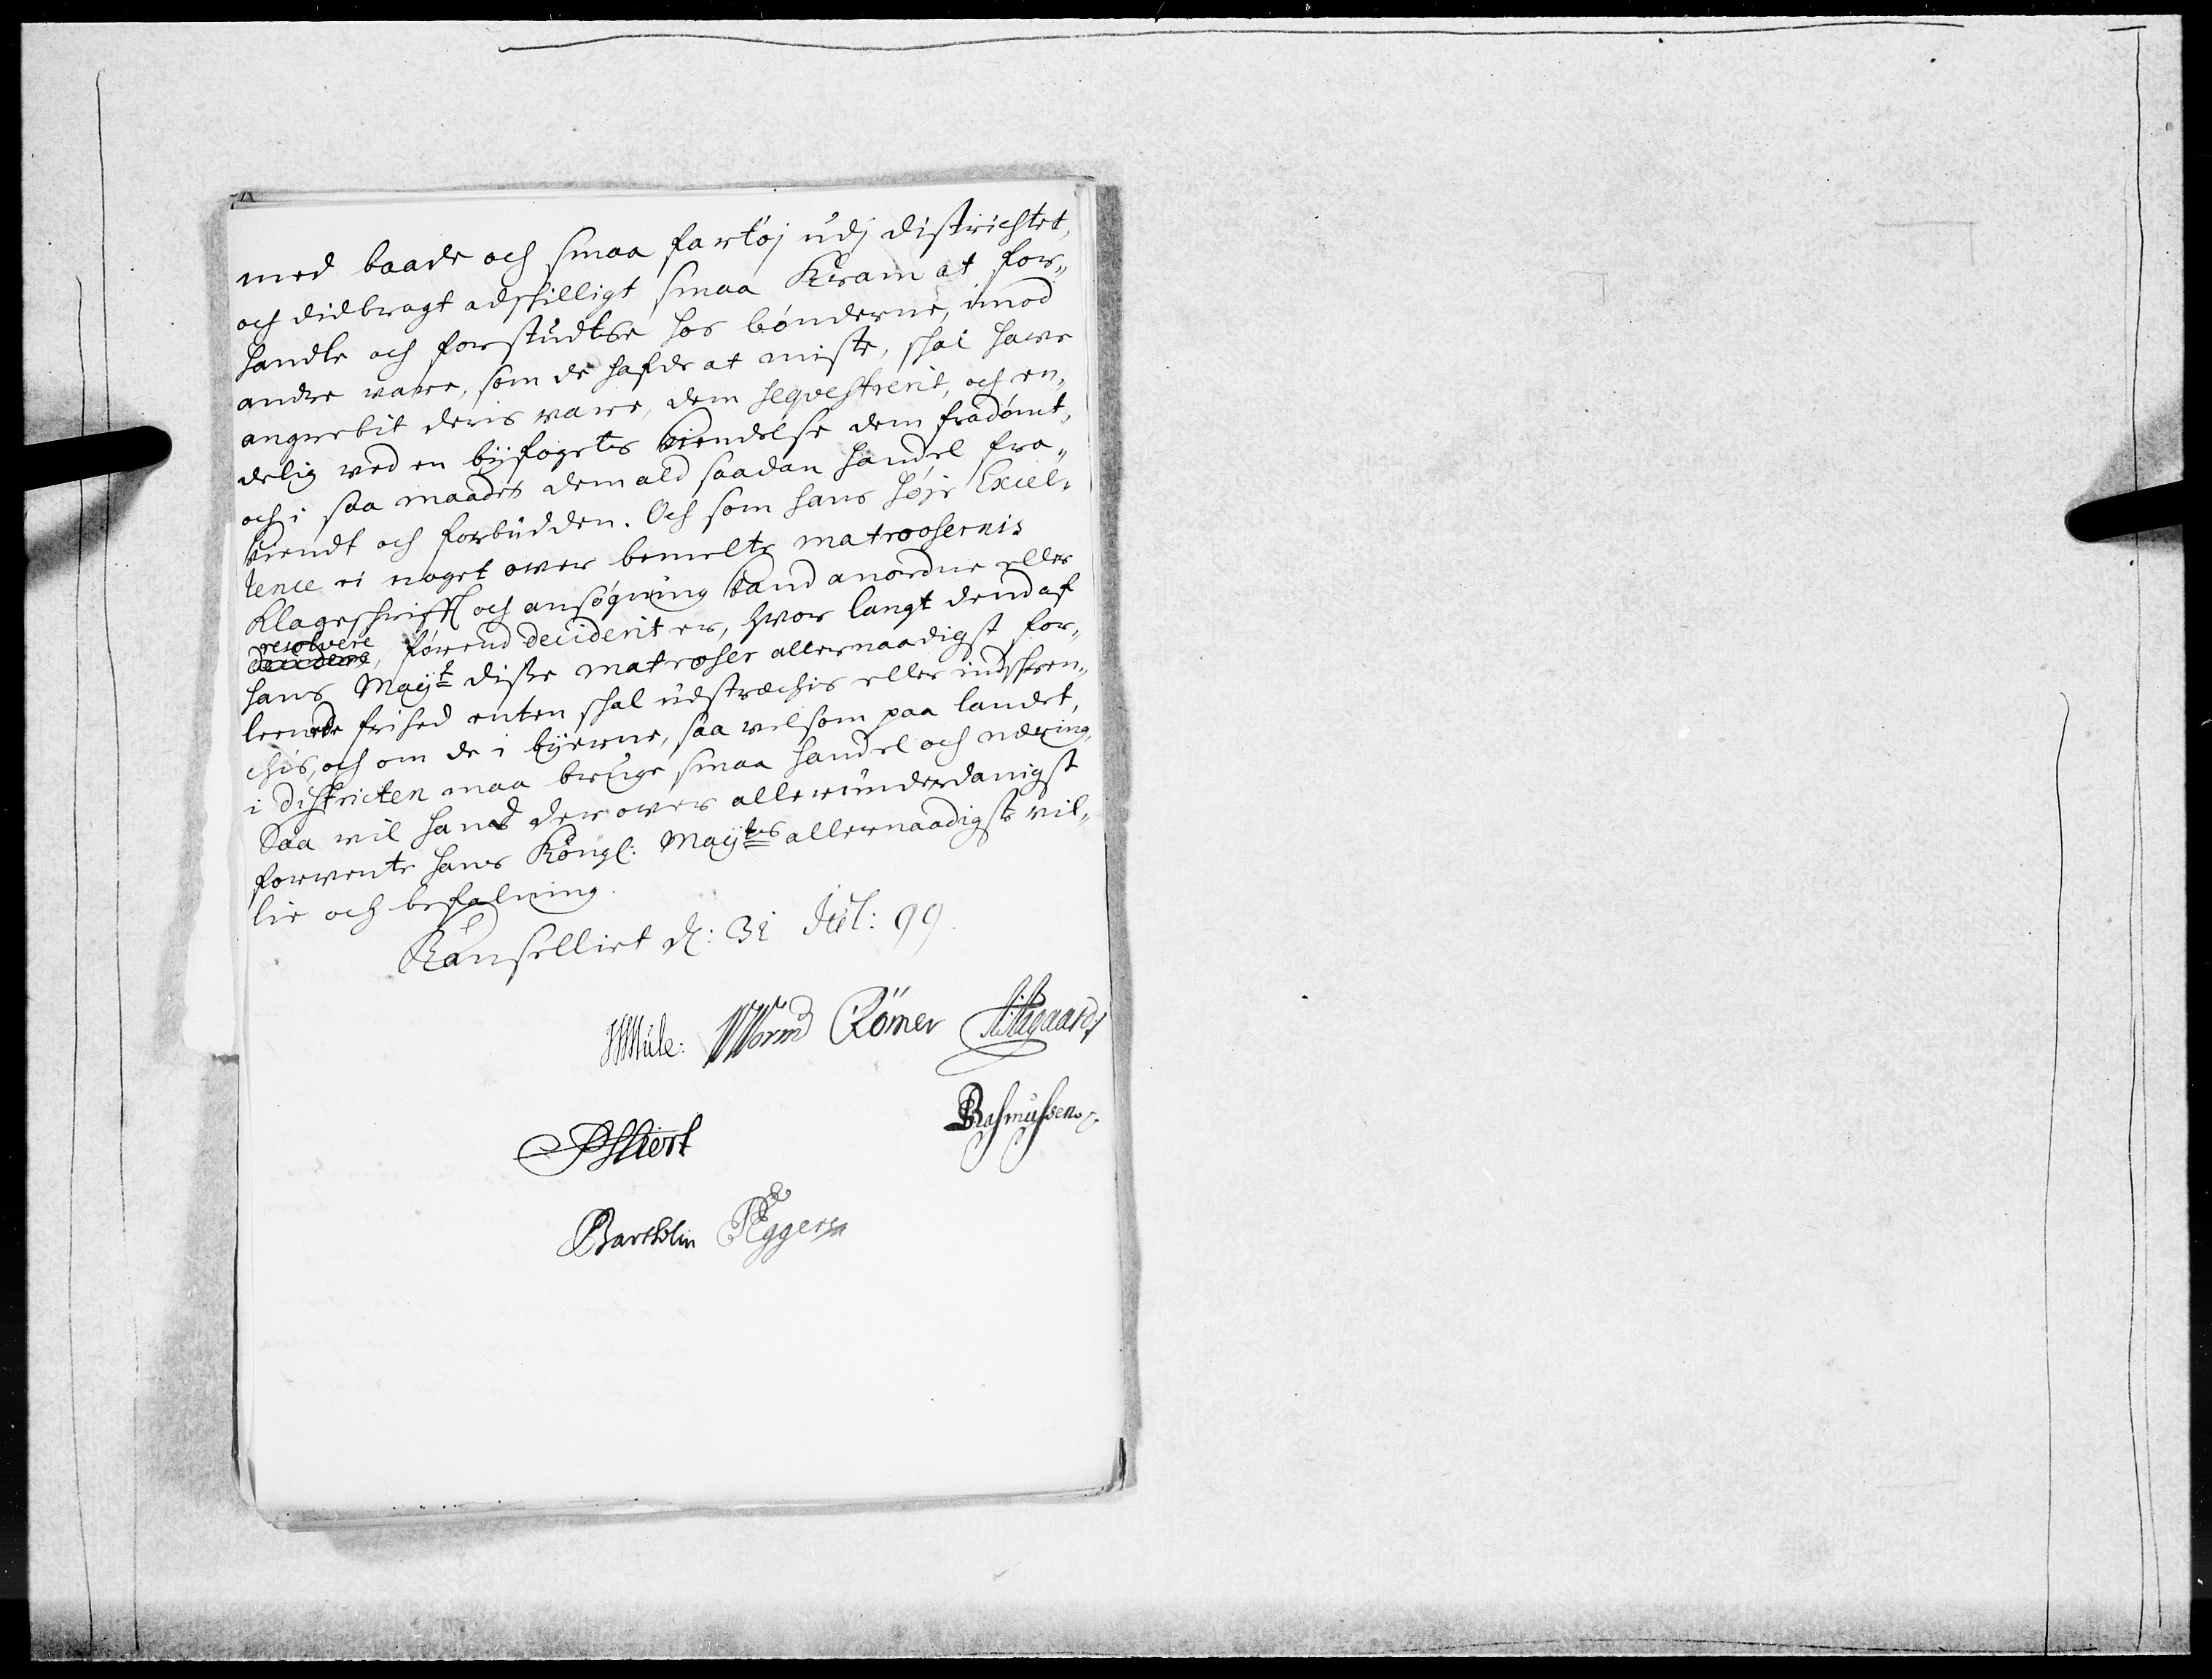 med baade och smaa fartøj udj districhtet,
och didbragt adskilligt smaa Kram at for-
handle och forstudtse hos bønderne, imod
andre vare, som de hafde at miste, skal have
angrebit deris vare, dem seqvestrerit, och en-
delig ved en byfogets kiendelse dem fradømt,
och i saa maader dem ald saadan handel fra-
kiendt och forbudden. Och som hans høje Excel-
lence ei noget over bemelte matroosernis
Klageskrifft och ansøgning kand anordne eller
resolvere, førend deciderit er, hvor langt dend af
hans Mayt disse matroser allernaadigst for-
leenede frihed enten skal udstrechis eller indskren-
chis, och om de i byerne, saa velsom paa landet,
i districten maa bruge smaa handel och næring,
Saa vil hand derover allerunderdanigst
forvente hans Kongl: Mayts allernaadigste vil-
lie och befalning.
Kanselliet d: 31 Jul: 99.
Mule: Worm Römer
Rasmussen
Bartholin Eggers